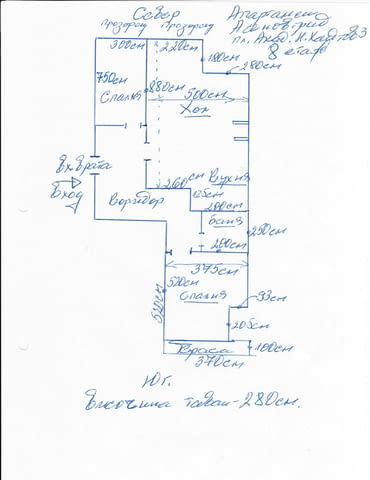 Север
Прозорец Прозорец
Апартамент
Асеновград
8 етаж
300см
220см
180см
280см
750см
Спалня
880см
500см
Хол
Вх. Врата
Вход
Коридор
260см
Кухня
125см
200см
Баня
250см
200см
375см
520см
Спалня
520см
93см
205см
Тераса
100см
370см
Юг.
Височина таван - 280см.